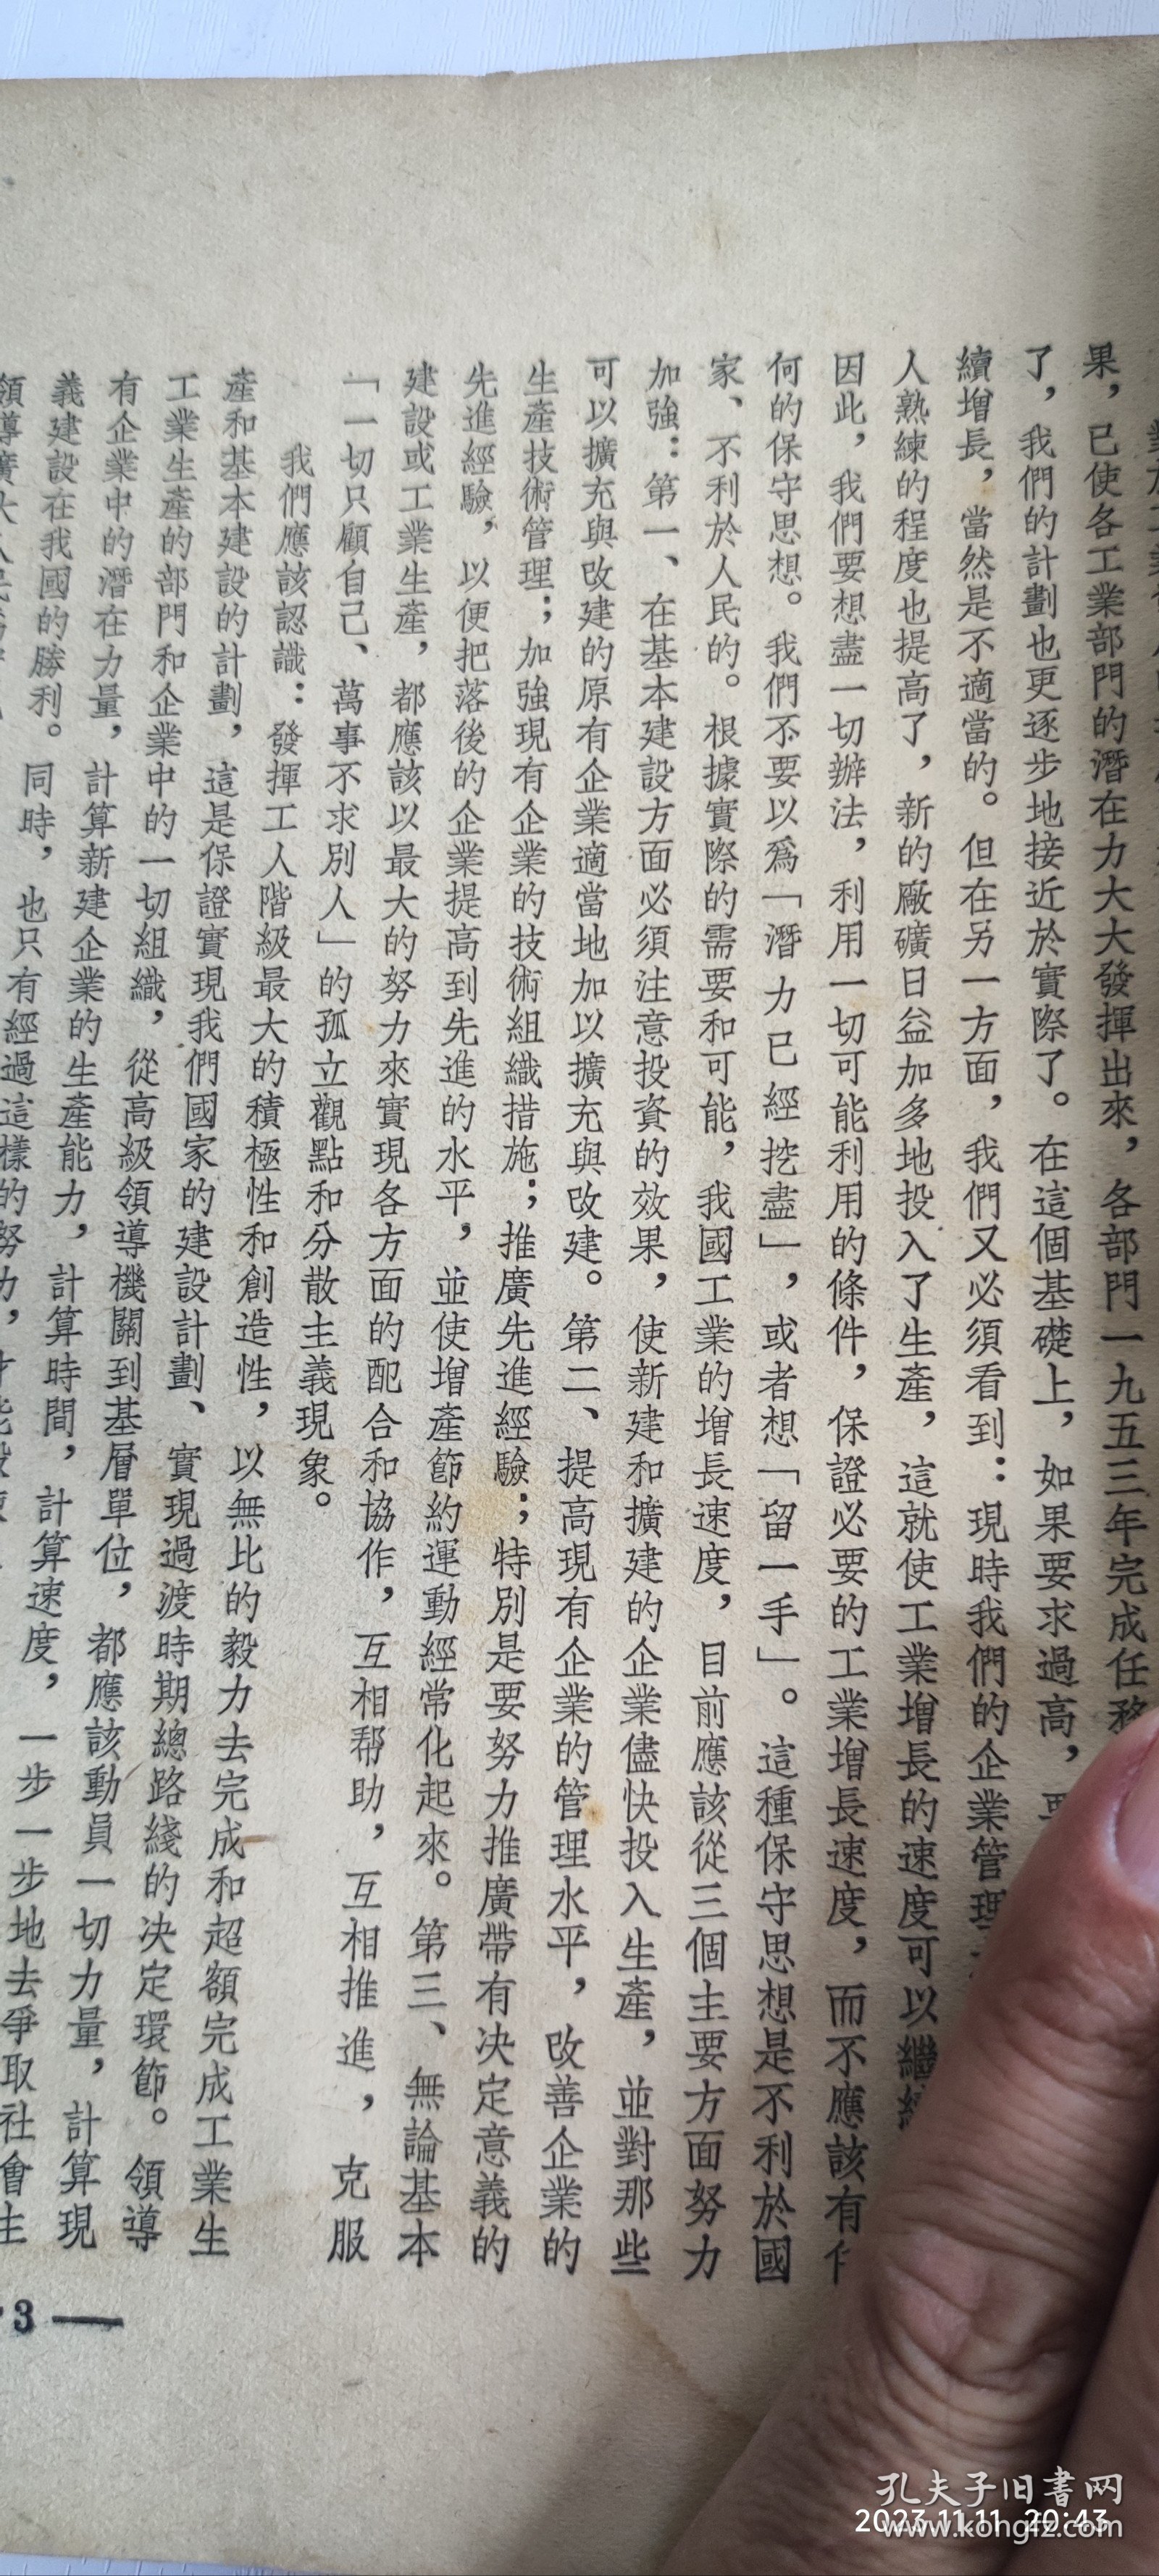 果，已使各工業部門的潛在力大大發揮出來，各部門一九五三年完成任務
了，我們的計劃也更逐步地接近於實際了。在這個基礎上，如果要求過高，
續增長，當然是不適當的。但在另一方面，我們又必須看到：現時我們的企業管理
人熟練的程度也提高了，新的廠礦日益加多地投入了生產，這就使工業增長的速度可以繼
因此，我們要想盡一切辦法，利用一切可能利用的條件，保證必要的工業增長速度，而不應該有
何的保守思想。我們不要以爲「潛力已經挖盡」，或者想「留一手」。這種保守思想是不利於國
家、不利於人民的。根據實際的需要和可能，我國工業的增長速度，目前應該從三個主要方面努力
加強：第一、在基本建設方面必須注意投資的效果，使新建和擴建的企業儘快投入生產，並對那些
可以擴充與改建的原有企業適當地加以擴充與改建。第二、提高現有企業的管理水平，改善企業的
生產技術管理；加強現有企業的技術組織措施；推廣先進經驗；特別是要努力推廣帶有決定意義的
先進經驗，以便把落後的企業提高到先進的水平，並使增產節約運動經常化起來。第三、無論基本
建設或工業生產，都應該以最大的努力來實現各方面的配合和協作，互相帮助，互相推進，克服
「一切只顧自己、萬事不求別人」的孤立觀點和分散主義現象。
我們應該認識：發揮工人階級最大的積極性和創造性，以無比的毅力去完成和超額完成工業生
產和基本建設的計劃，這是保證實現我們國家的建設計劃、實現過渡時期總路綫的决定環節。領導
工業生產的部門和企業中的一切組織，從高級領導機關到基層單位，都應該動員一切力量，計算現
有企業中的潛在力量，計算新建企業的生產能力，計算時間，計算速度，一步一步地去爭取社會主
義建設在我國的勝利。同時，也只有經過這樣的努力，
3 —
孔夫子旧書网
www.kongfz.com
2023.11.11 20:43